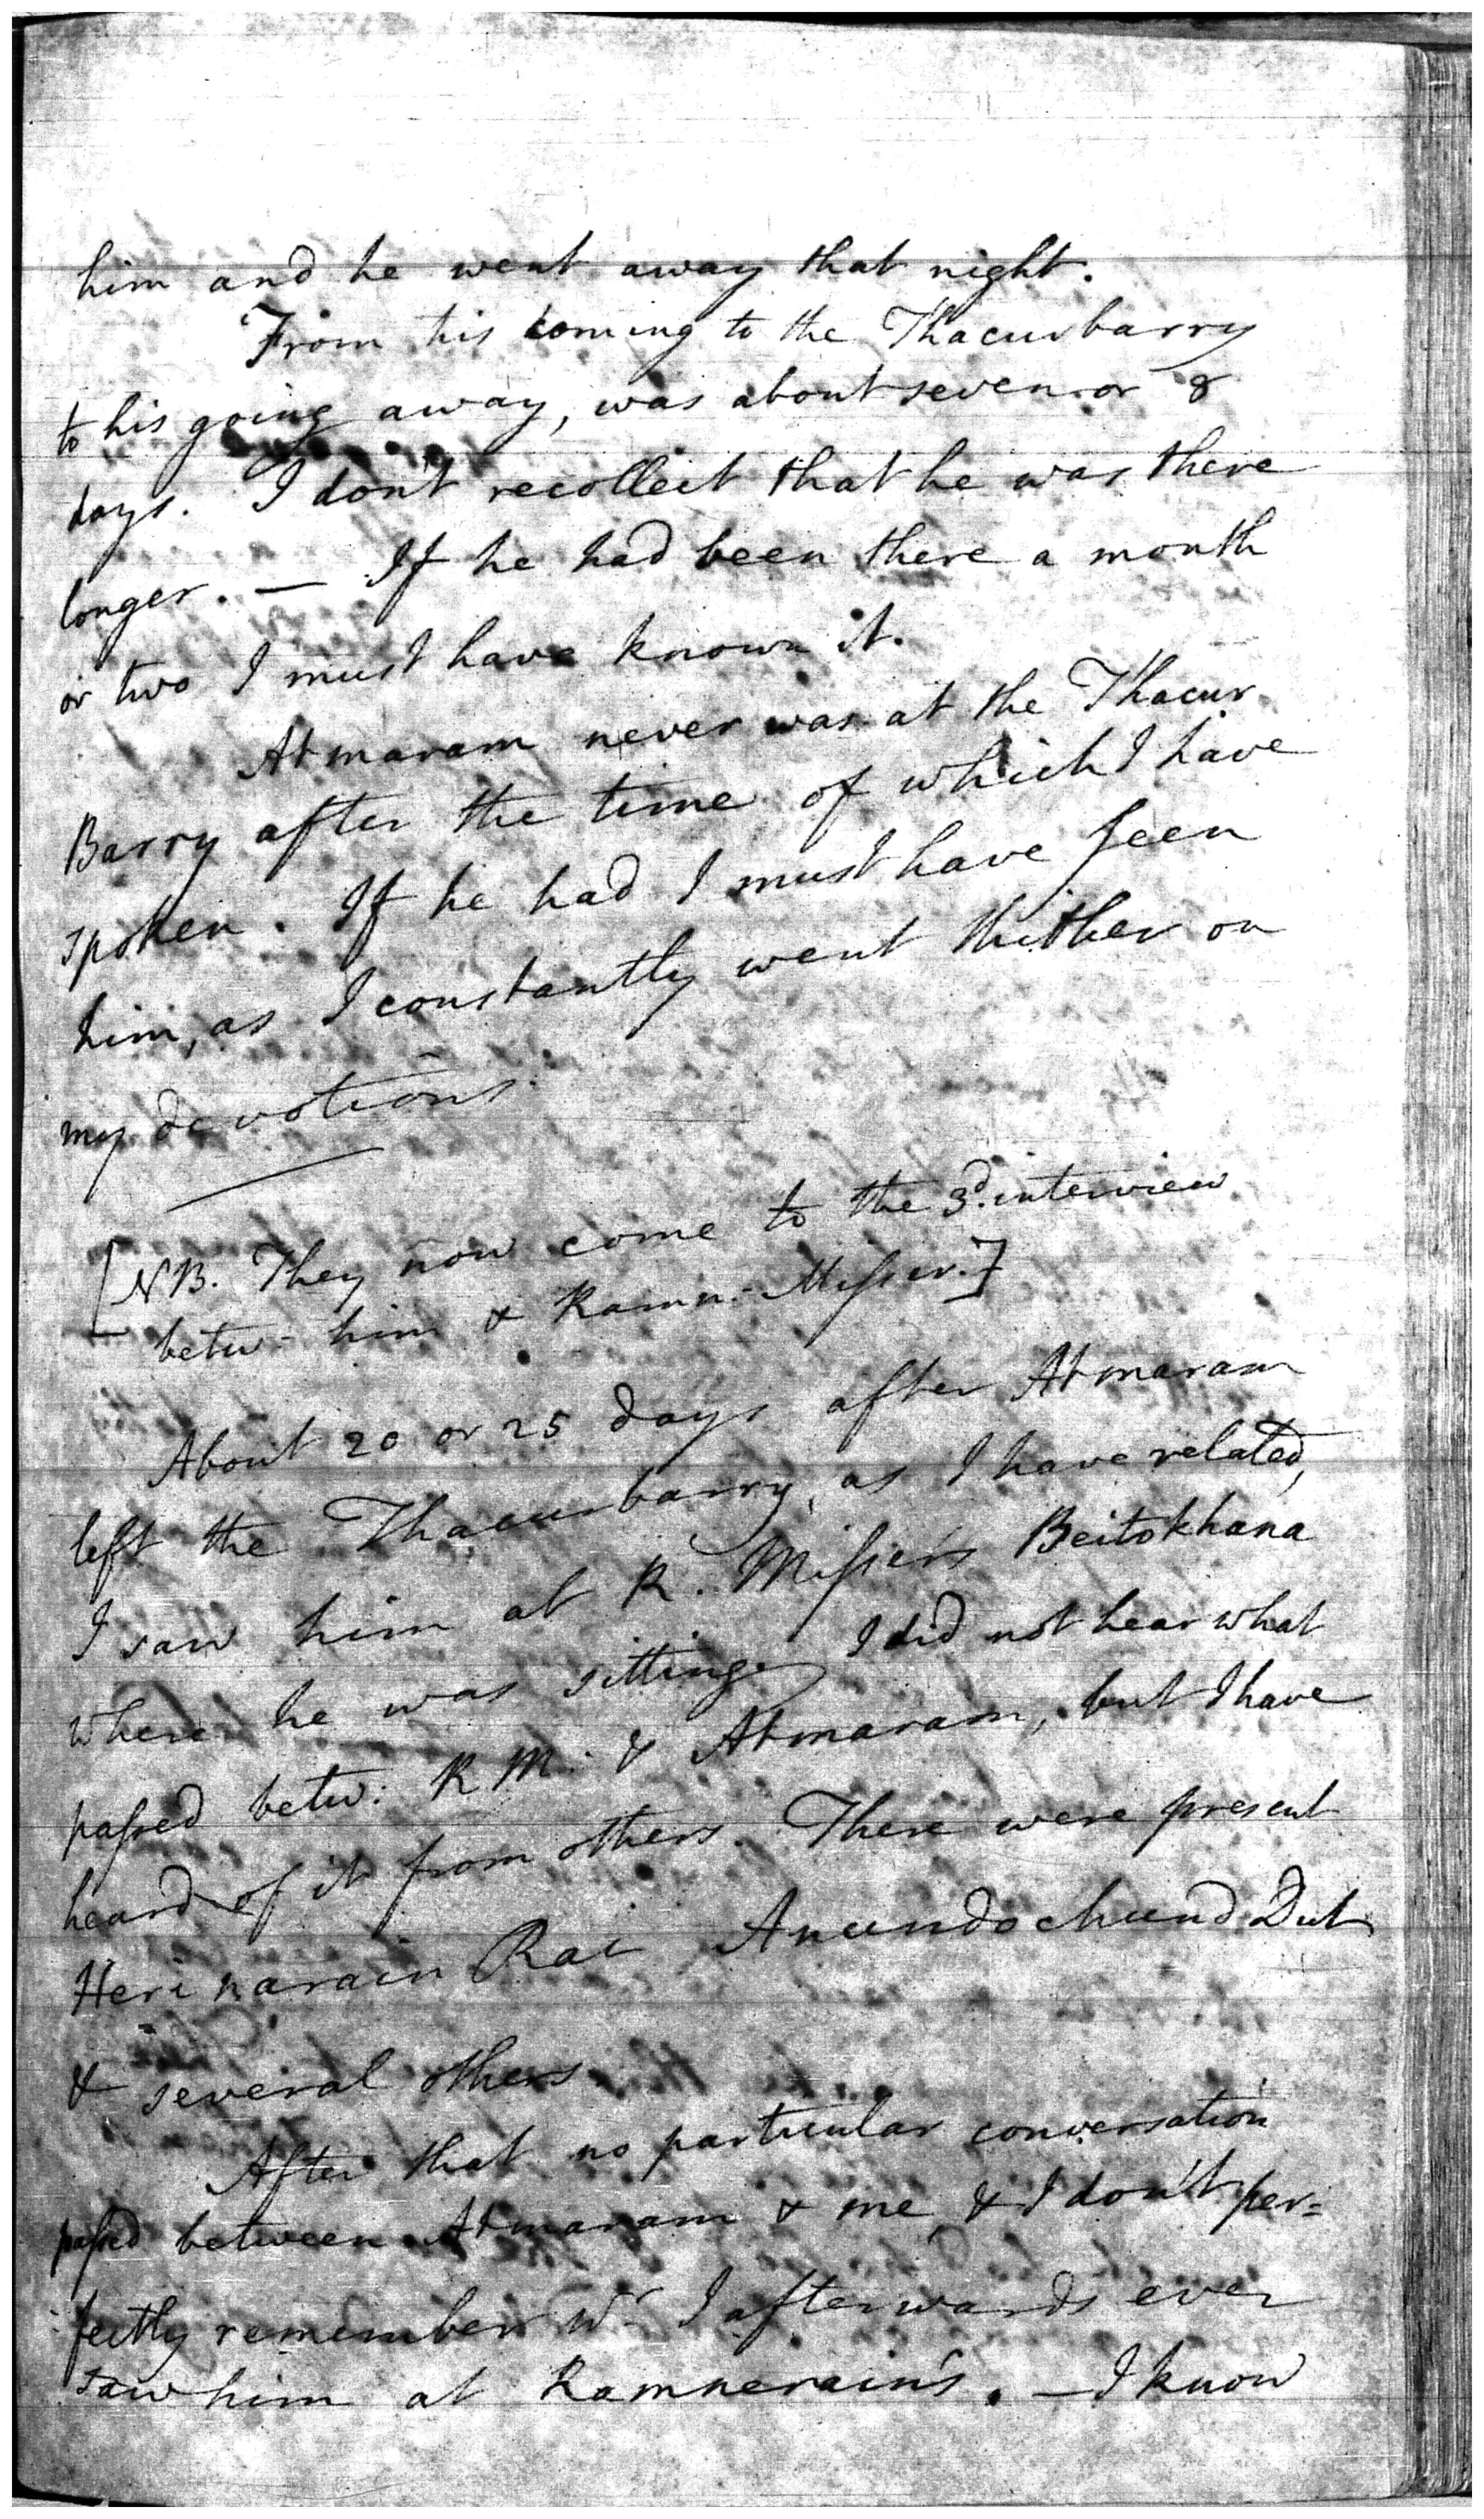 him and he went away that night.
From his coming to the Thacurbarry
to his going away, was about seven or 8
days. I don't recollect that he was there
longer. — If he had been there a month
or two I must have known it.
Atmaram never was at the Thacur
Barry after the time of which I have
spoken. If he had I must have seen
him, as I constantly went thither on
my devotions
[NB. They now come to the 3d. interview
betw. him & Ramn. Misser.]
About 20 or 25 days after Atmaram
left the Thacurbarry, as I have related,
I saw him at R. Misser's Beitokhana
where he was sitting. I did not hear what
passed betw: R M. & Atmaram, but I have
heard of it from others. There were present
Heri narain Rai Anundochund Dut
& several others.
After that no particular conversation
passed between Atmaram & me, & I don't per=
fectly remember wr. I afterwards ever
saw him at Ramnerain's. — I know